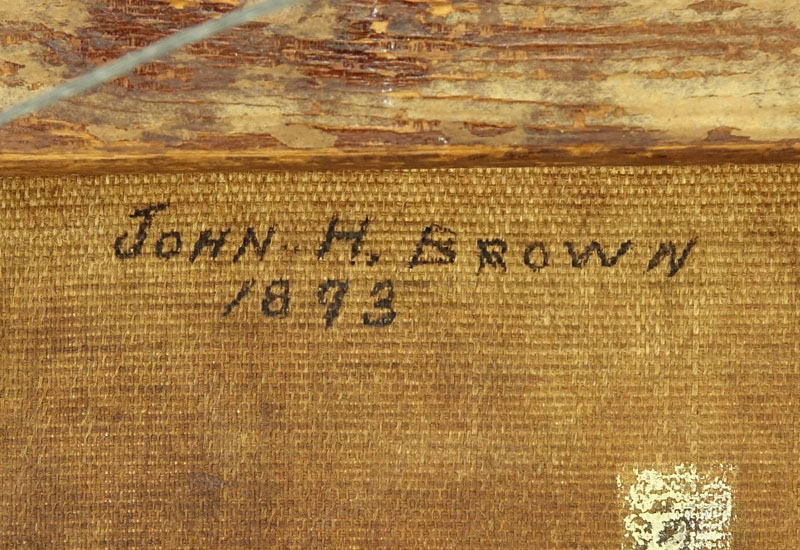 JOHN H. BROWN
1893